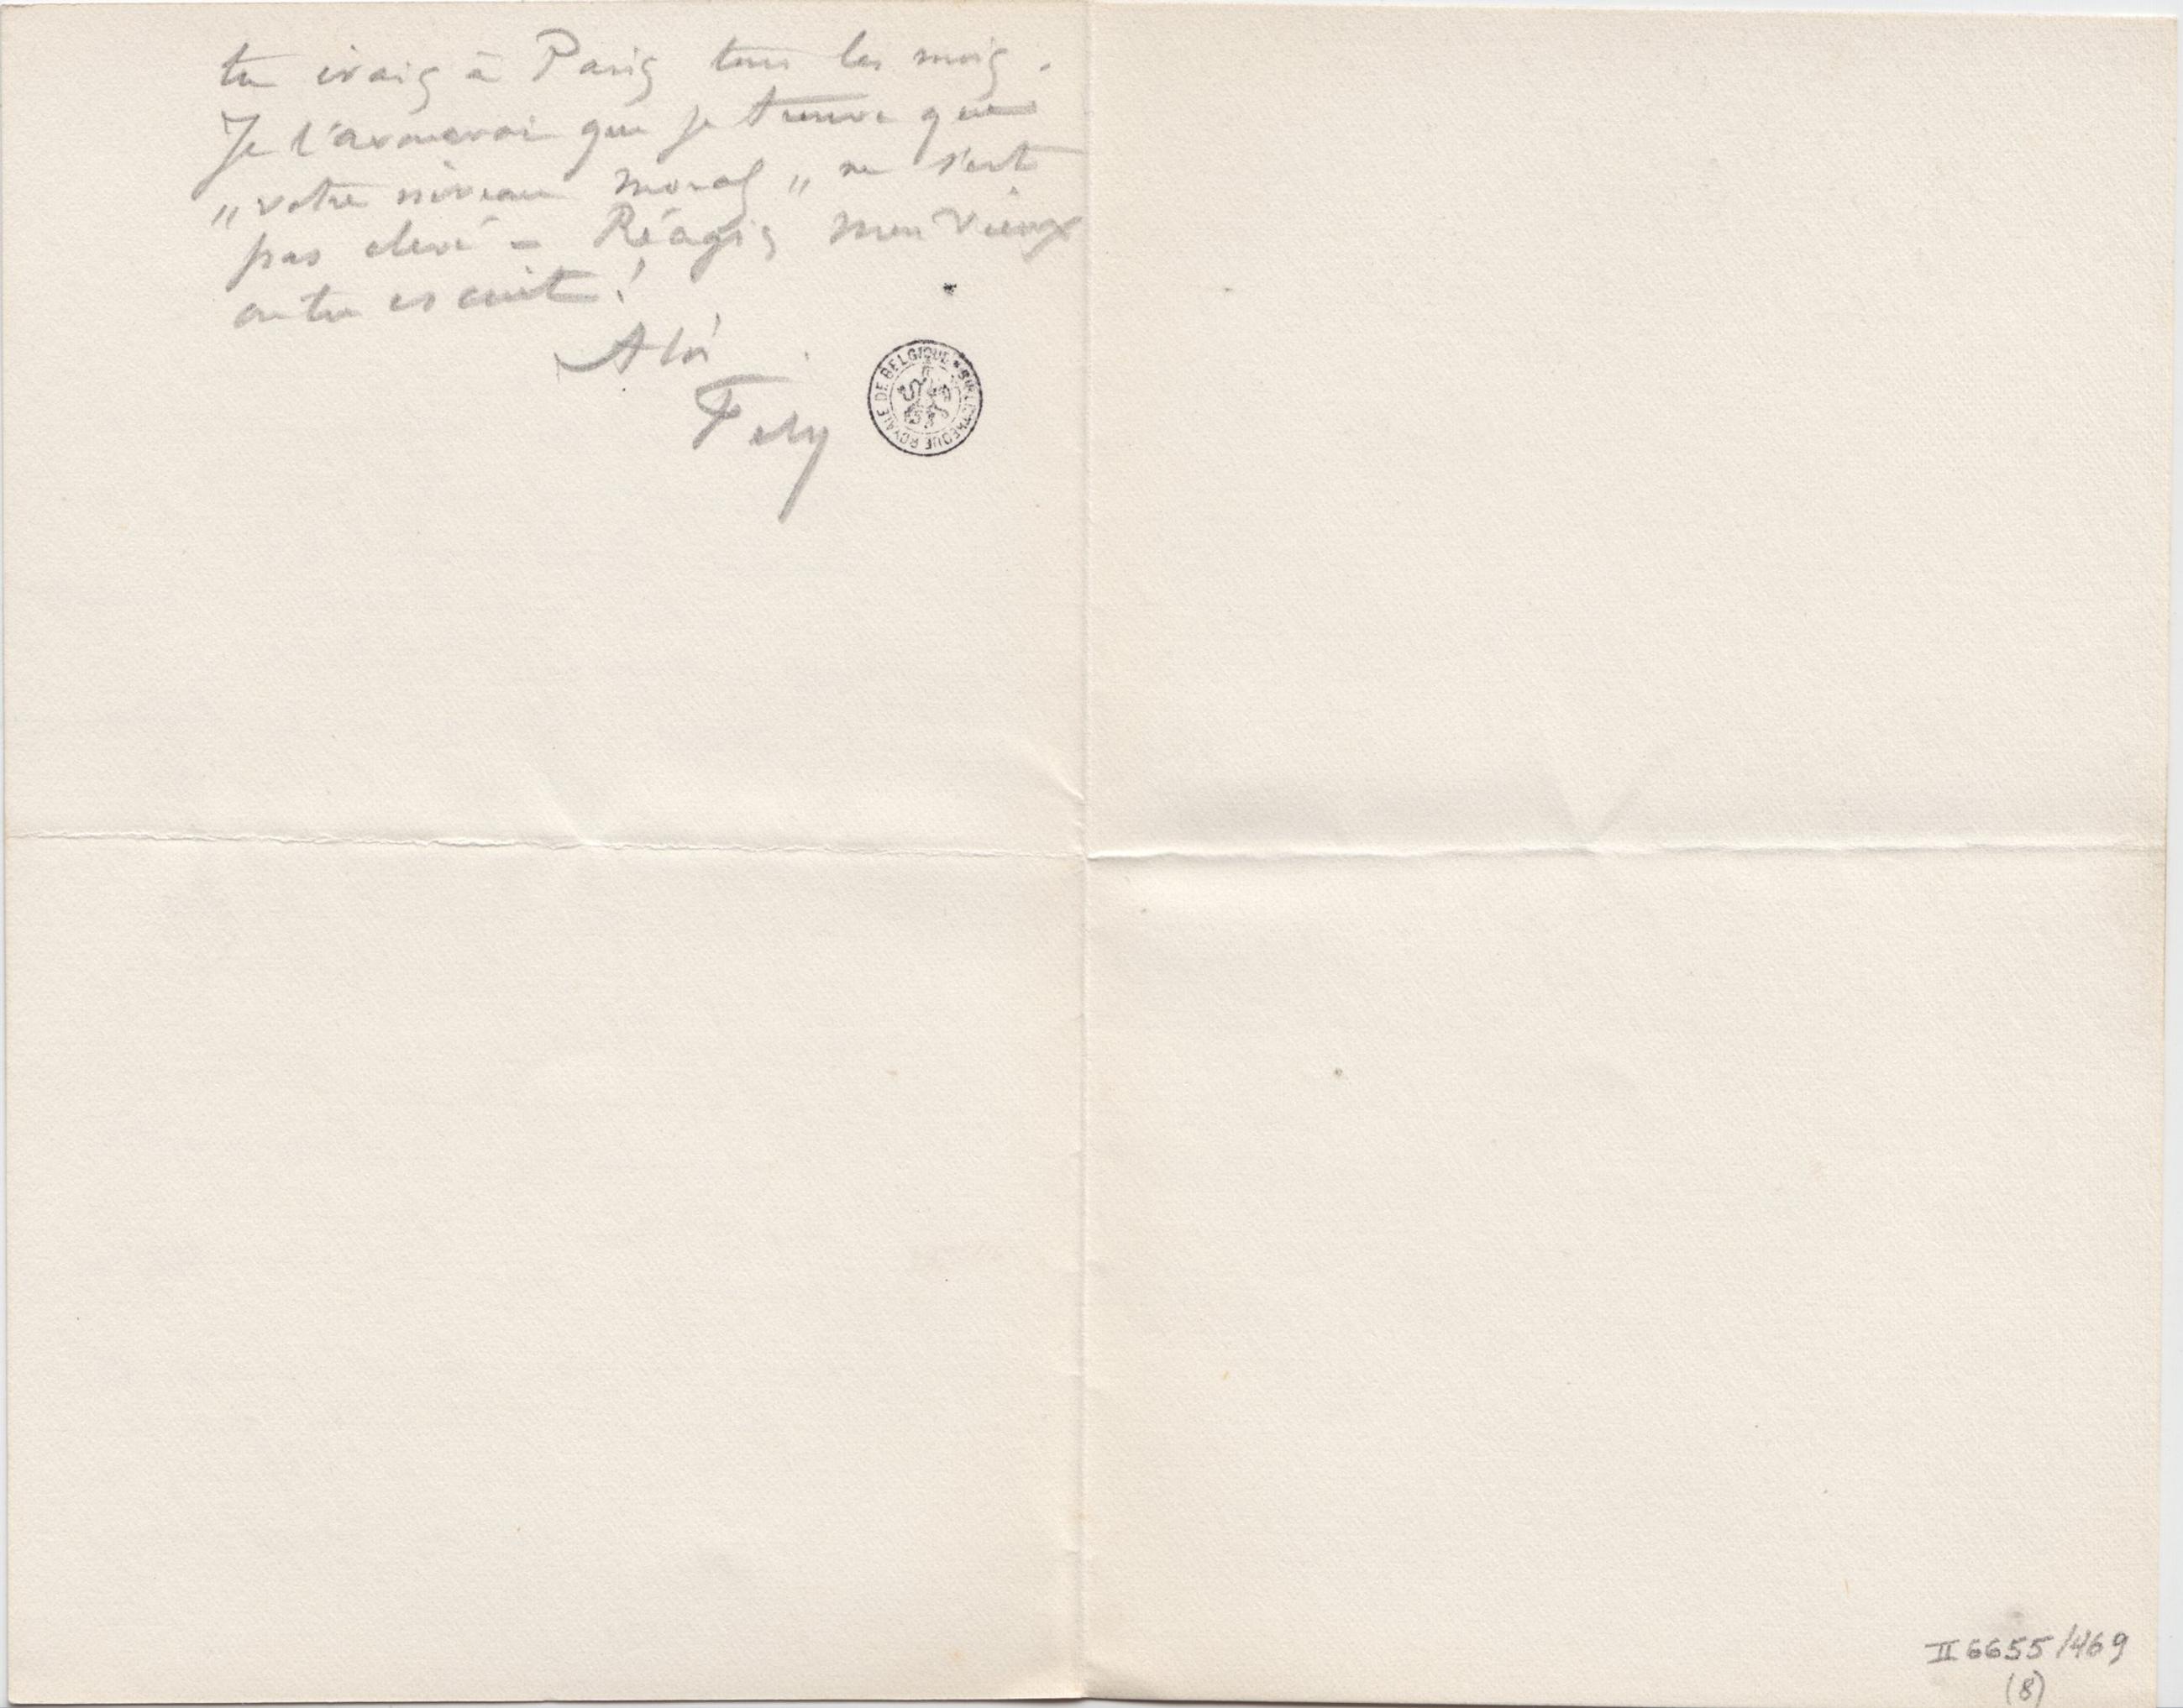 tu irais à Paris tous les mois.
Je t'avouerai que je trouve que
„votre niveau moral„ ne s'est
pas elevé – Réagis mon vieux
ou tu es cuit !
A toi
Fély
BIBLIOTHEQUE ROYALE DE BELGIQUE *
II 6655/469
(8)